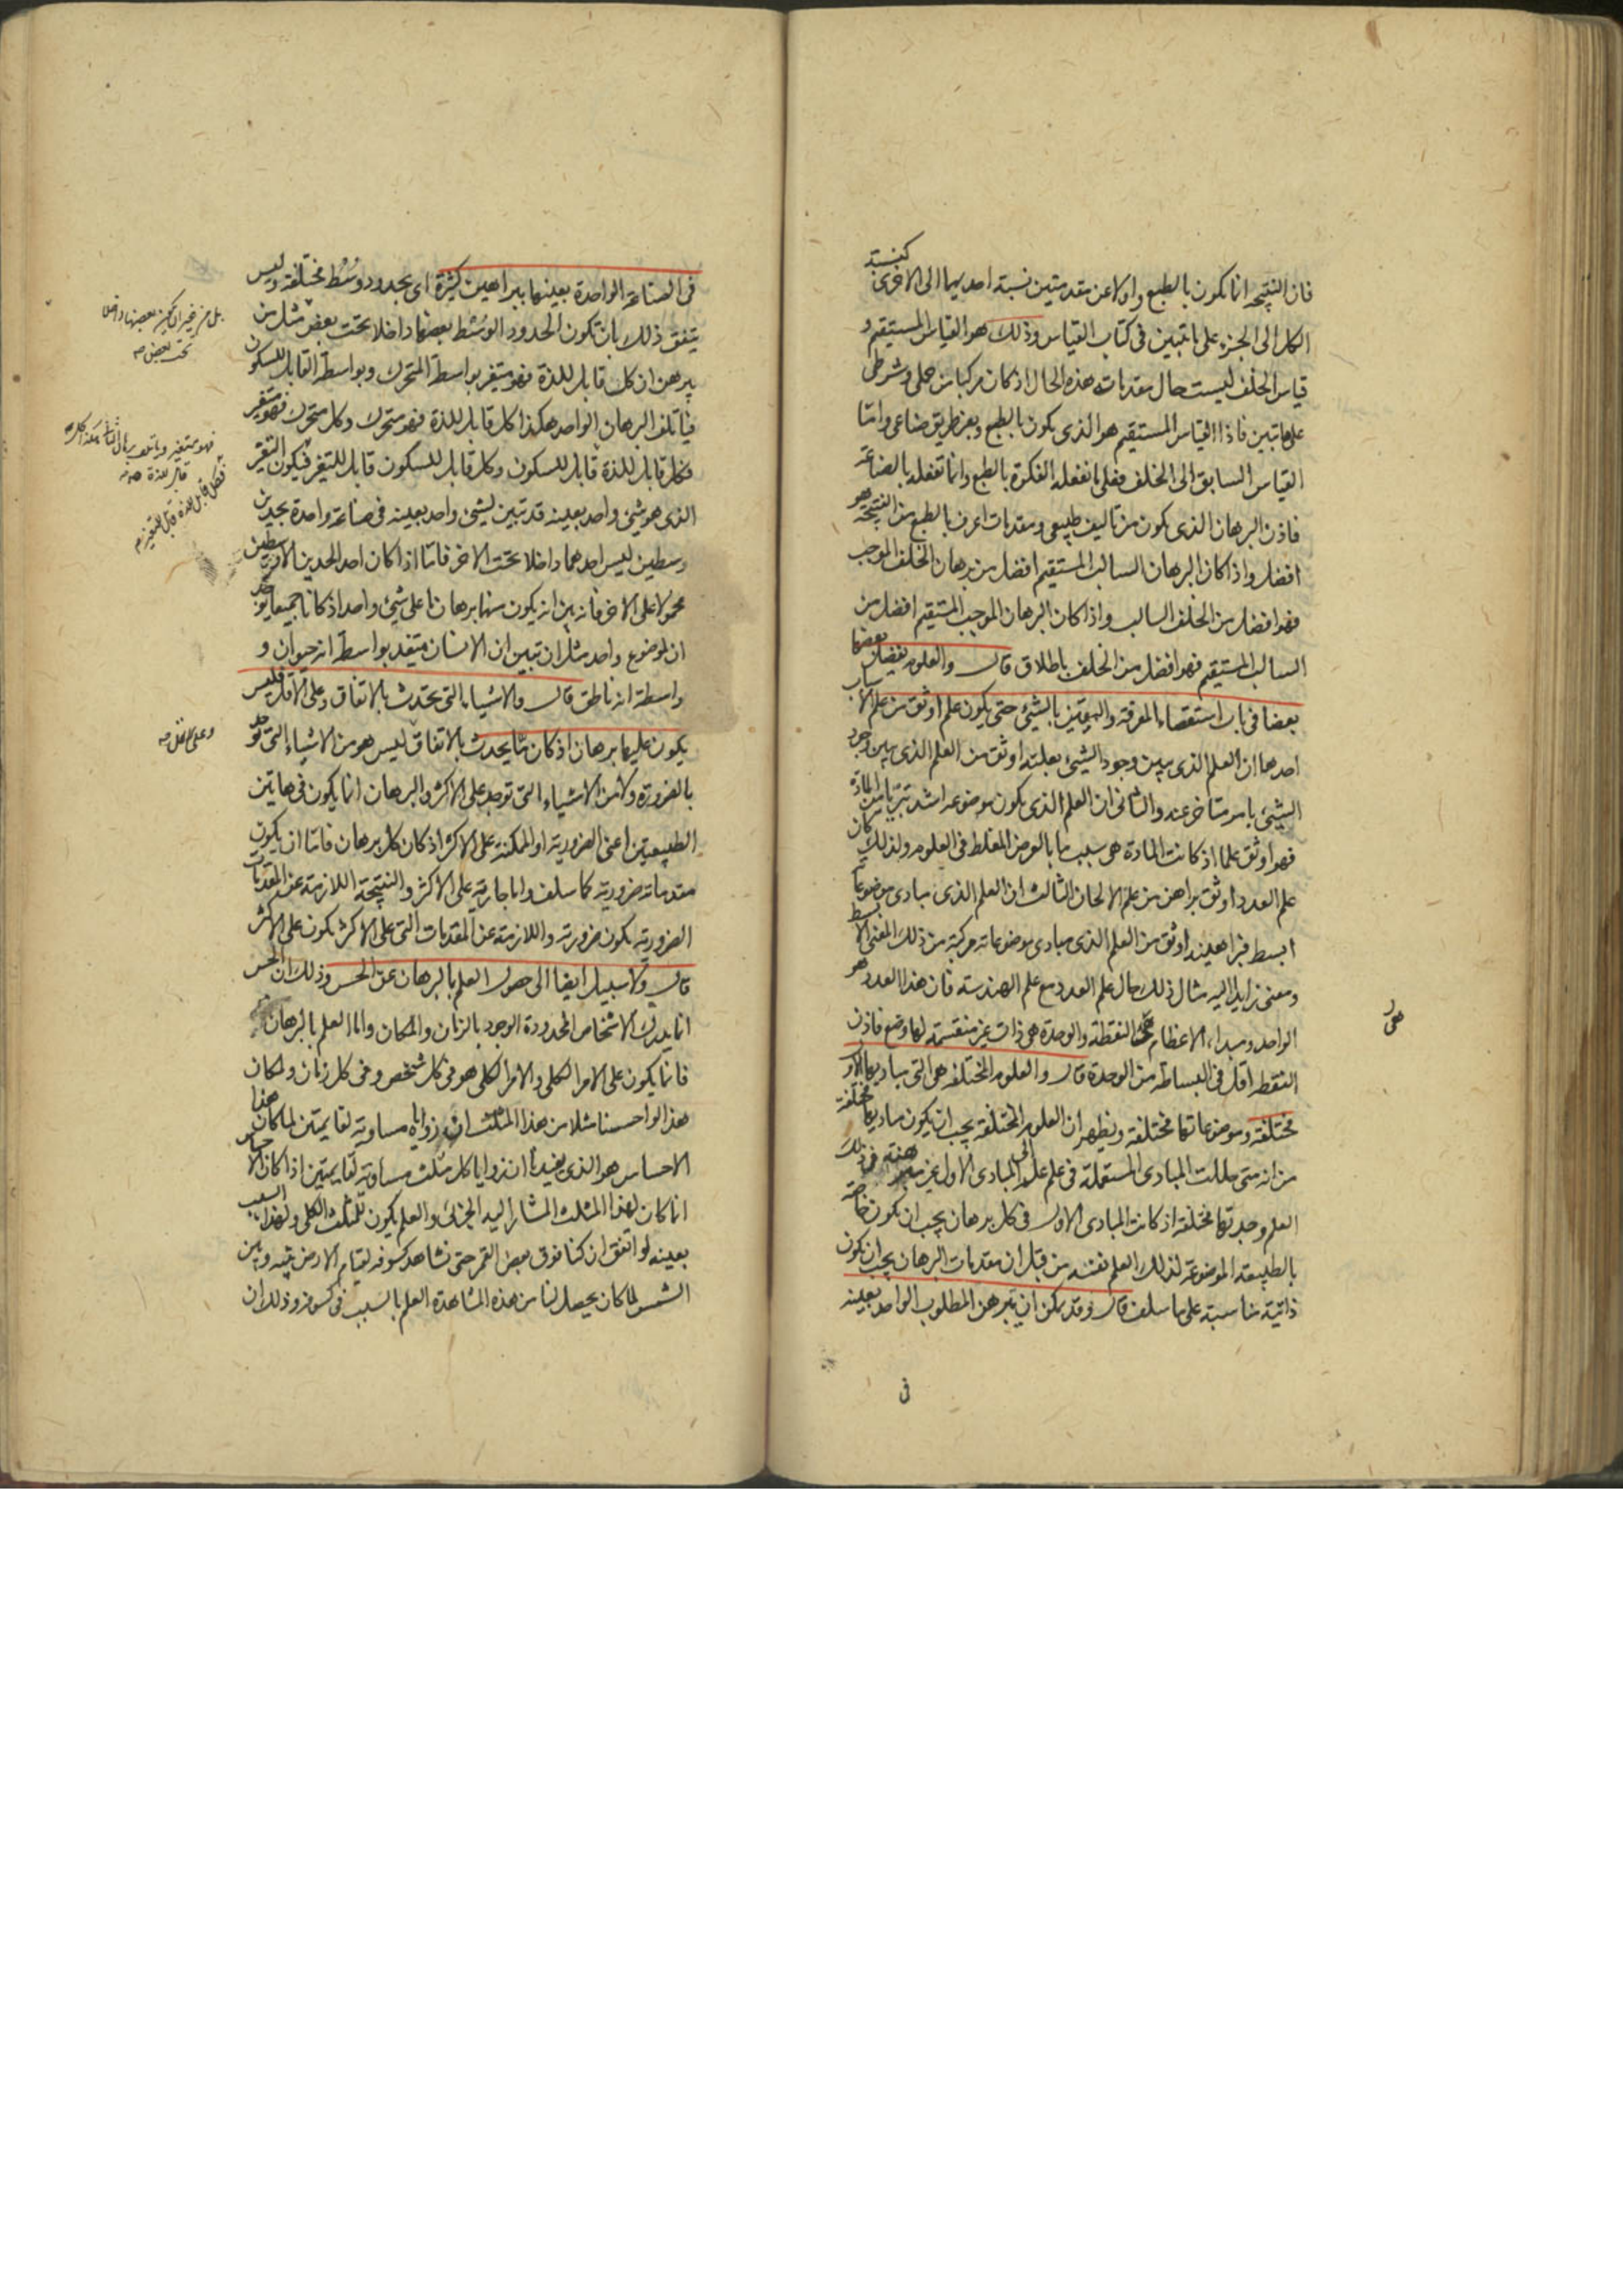 فان النتيجة انما تكون بالطبع واولا عن مقدمتين نسبة احديهما الى الاخرى كنسبة
الكل الى الجزء على ما تبين فى كتاب القياس وذلك هو القياس المستقيم و
قياس الخلف ليست حال مقدماته هذه الحال اذ كان مركبا من حملى وشرطى
على ما تبين فاذا القياس المستقيم هو الذى يكون بالطبع وبغير طريق صناعى واما
القياس السابق الى الخلف فقلما تفعله الفكرة بالطبع وانما تفعله بالصناعة
فاذن البرهان الذى يكون من تاليف طبيعى ومقدمات اعرف بالطبع من النتيجة هو
افضل واذا كان البرهان السالب المستقيم افضل من برهان الخلف الموجب
فهو افضل من الخلف السالب واذا كان البرهان الموجب المستقيم افضل من
السالب المستقيم فهو افضل من الخلف باطلاق قال والعلوم يفضل بعضها
بعضا فى باب استقصاء المعرفة واليقين بالشيئ حتى يكون علم اوثق من علم لاسباب
احدها ان العلم الذى يبين وجود الشيئ بعلته اوثق من العلم الذى يبين وجود
الشيئ بامر متاخر عنه والثانى ان العلم الذى يكون موضوعه اشد تبريا من المادة
فهو اوثق علما اذ كانت المادة هى سبب ما بالعرض المغلط فى العلوم ولذلك كان
علم العدد اوثق براهن من علم الالحان الثالث ان العلم الذى مبادى موضوعاته
ابسط فبراهينه اوثق من العلم الذى مبادى موضوعاته مركبة من ذلك المعنى الابسط
ومعنى زايد اليه مثال ذلك حال علم العدد مع علم الهندسة فان هذا العدد هو
الواحد ومبداء الاعظام النقطة والوحدة هى ذات غير منقسمة لها وضع فاذن
النقطة اقل فى البساطة من الوحدة قال والعلوم المختلفة هى التى مباديها الاول
مختلفة وموضوعاتها مختلفة ويظهر ان العلوم المختلفة يجب ان يكون مباديها مختلفة
من انه متى حللت المبادى المستعملة فى علم علم الى المبادى الاول غير مبرهنة فى ذلك
العلم وجدتها مختلفة اذ كانت المبادى الاول فى كل برهان يجب ان يكون خاصة
بالطبيعة الموضوعة لذلك العلم نفسه من قبل ان مقدمات البرهان يجب ان تكون
ذاتية مناسبة على ما سلف قال وقد يمكن ان يتبرهن المطلوب الواحد بعينه
فى
فى الصناعة الواحدة بعينها ببراهين كثيرة اى بحدود وسط مختلفة وليس
يتفق ذلك بان تكون الحدود الوسط بعضها داخلا تحت بعض مثل من
يبرهن ان كل قابل للذة فهو متغير بواسطة المتحرك وبواسطة القابل للسكون
فياتلف البرهان الواحد هكذا كل قابل للذة فهو متحرك وكل متحرك فهو متغير
فكل قابل للذة قابل للسكون وكل قابل للسكون قابل للتغير فيكون التغير
الذى هو شيئ واحد بعينه قد تبين لشيئ واحد بعينه فى صناعة واحدة بحدين
وسطين ليس احدهما داخلا تحت الاخر فاما اذا كان احد الحدين الاوسطين
محمولا على الاخر فانه بين انه يكون منها برهانا على شيئ واحد اذ كانا جميعا يوجد
ان لموضوع واحد مثل ان تبين ان الانسان متغذ بواسطة انه حيوان و
واسطة انه ناطق قال والاشياء التى تحدث بالاتفاق وعلى الاقل فليس
يكون عليها برهان اذ كان ما يحدث بالاتفاق ليس هو من الاشياء التى توجد
بالضرورة ولا من الاشياء التى توجد على الاكثر والبرهان انما يكون فى هاتين
الطبيعتين اعنى الضرورية او الممكنة على الاكثر اذ كان كل برهان فاما ان يكون
مقدماته ضرورية كما سلف واما جارية على الاكثر والنتيجة اللازمة عن المقدمات
الضرورية يكون ضرورية واللازمة عن المقدمات التى على الاكثر يكون على الاكثر
قال ولا سبيل ايضا الى حصول العلم بالبرهان عن الحس وذلك ان الحس
انما يدرك الاشخاص المحدودة الوجود بالزمان والمكان واما العلم بالبرهان
فانما يكون على الامر الكلى والامر الكلى هو فى كل شخص وفى كل زمان ولمكان
هذا لو احسسنا مثلا من هذا المثلث ان زواياه مساوية لقايمتين لما كان هذا
الاحساس هو الذى يفيدنا ان زوايا كل مثلث مساوية لقايمتين اذا كان الاحساس
انما كان لهذا المثلث المشار اليه الجزئى والعلم يكون للمثلث الكلى ولهذا السبب
بعينه لو اتفق ان كنا فوق بعض القمر حتى نشاهد كسوفه لقيام الارض بينه وبين
الشمس لما كان يحصل لنا من هذه المشاهدة العلم بالسبب فى كسوفه وذلك ان
بل من غير ان يكون بعضها داخلا
تحت بعض صه
وعلى الاقل صه